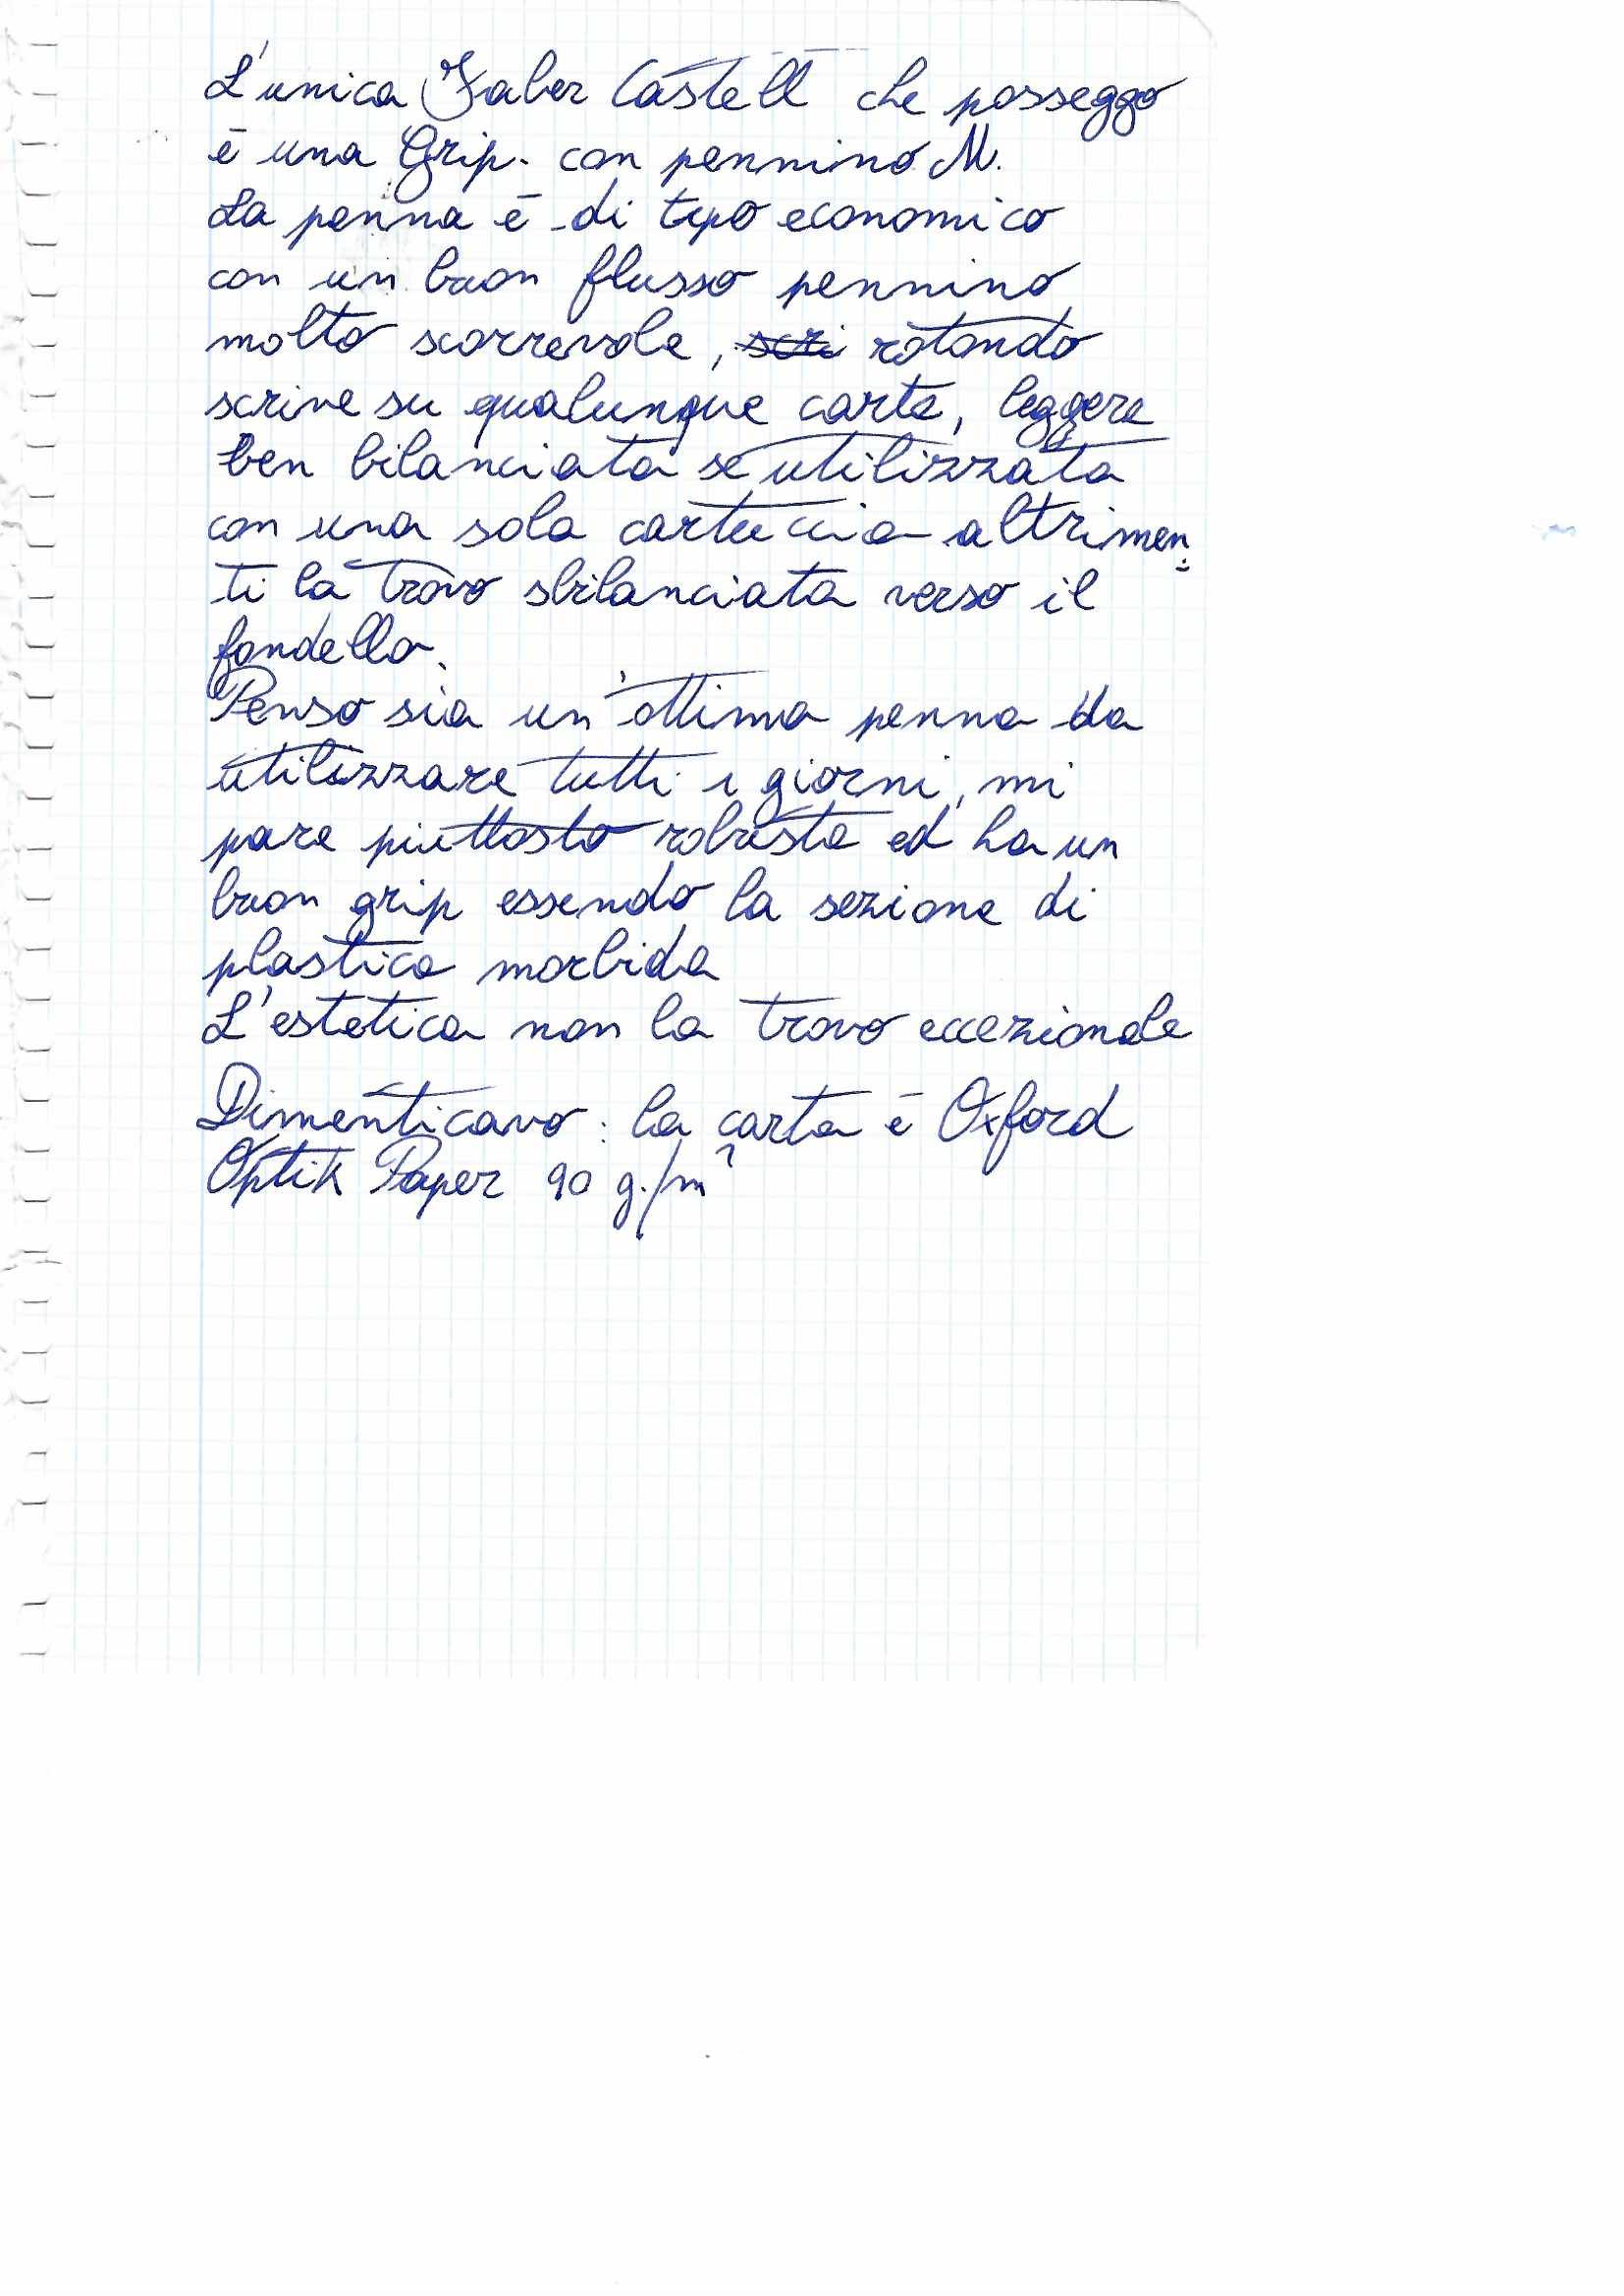 L'unica Faber Castell che posseggo
è una Grip. con pennino M.
La penna è di tipo economico
con un buon flusso pennino
molto scorrevole, scri rotondo
scrive su qualunque carta, leggera
ben bilanciata se utilizzata
con una sola cartuccia altrimen=
ti la trovo sbilanciata verso il
fondello.
Penso sia un'ottima penna da
utilizzare tutti i giorni, mi
pare piuttosto robusta ed ha un
buon grip essendo la sezione di
plastica morbida
L'estetica non la trovo eccezionale
Dimenticavo: la carta è Oxford
Optik Paper 90 g./m²